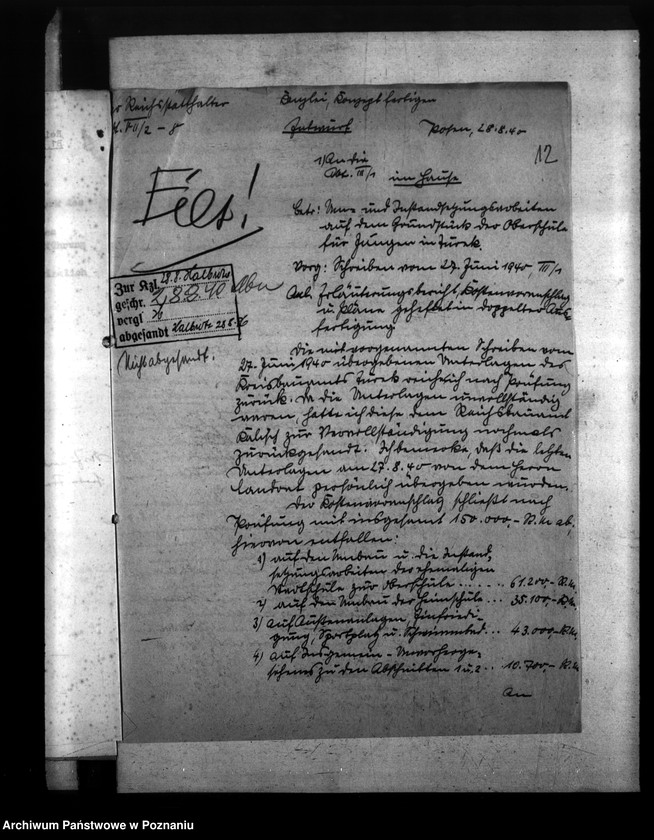 Reichsstatthalter
Kanzlei, Konzept fertigen
VII/2 - 8
Entwurf
Posen, 28.8.40
12
1) An die
Abt. III/1
im Hause
Eilt!
Betr: Um- und Instandsetzungsarbeiten
auf dem Grundstück der Oberschule
für Jungen in Turek.
Vorg: Schreiben vom 27. Juni 1940 III/1
Anl. Erläuterungsbericht, Kostenvoranschlag
u. Pläne geheftet in doppelter Aus-
fertigung
Zur Kzl. 28.8.
geschr. 28.8.40
vergl.
abgesandt
Nicht abgesandt.
Die mit vorgenannten Schreiben vom
27. Juni 1940 übergebenen Unterlagen des
Kreisbauamts Turek reiche ich nach Prüfung
zurück. Da die Unterlagen unvollständig
waren, hatte ich diese dem Reichsbauamt
Kalisch zur Vervollständigung nochmals
zurückgesandt. Ich bemerke, daß die letzten
Unterlagen am 27.8.40 von dem Herrn
Landrat persönlich übergeben wurden.
Der Kostenvoranschlag schließt nach
Prüfung mit insgesamt 150.000,- R.M. ab,
hiervon entfallen:
1) auf den Umbau u. die Instand-
setzungsarbeiten der ehemaligen
zur Oberschule ...... 61.200,- R.M.
2) auf den Umbau der Heimschule ... 35.100,- R.M.
3) auf Außenanlagen, Einfriedi-
gung, Sportplatz u. Schwimmbad ... 43.000,- R.M.
4) auf Insgemein - Unvorherge-
sehenes zu den Abschnitten 1 u. 2 .. 10.700,- R.M.
An
Archiwum Państwowe w Poznaniu